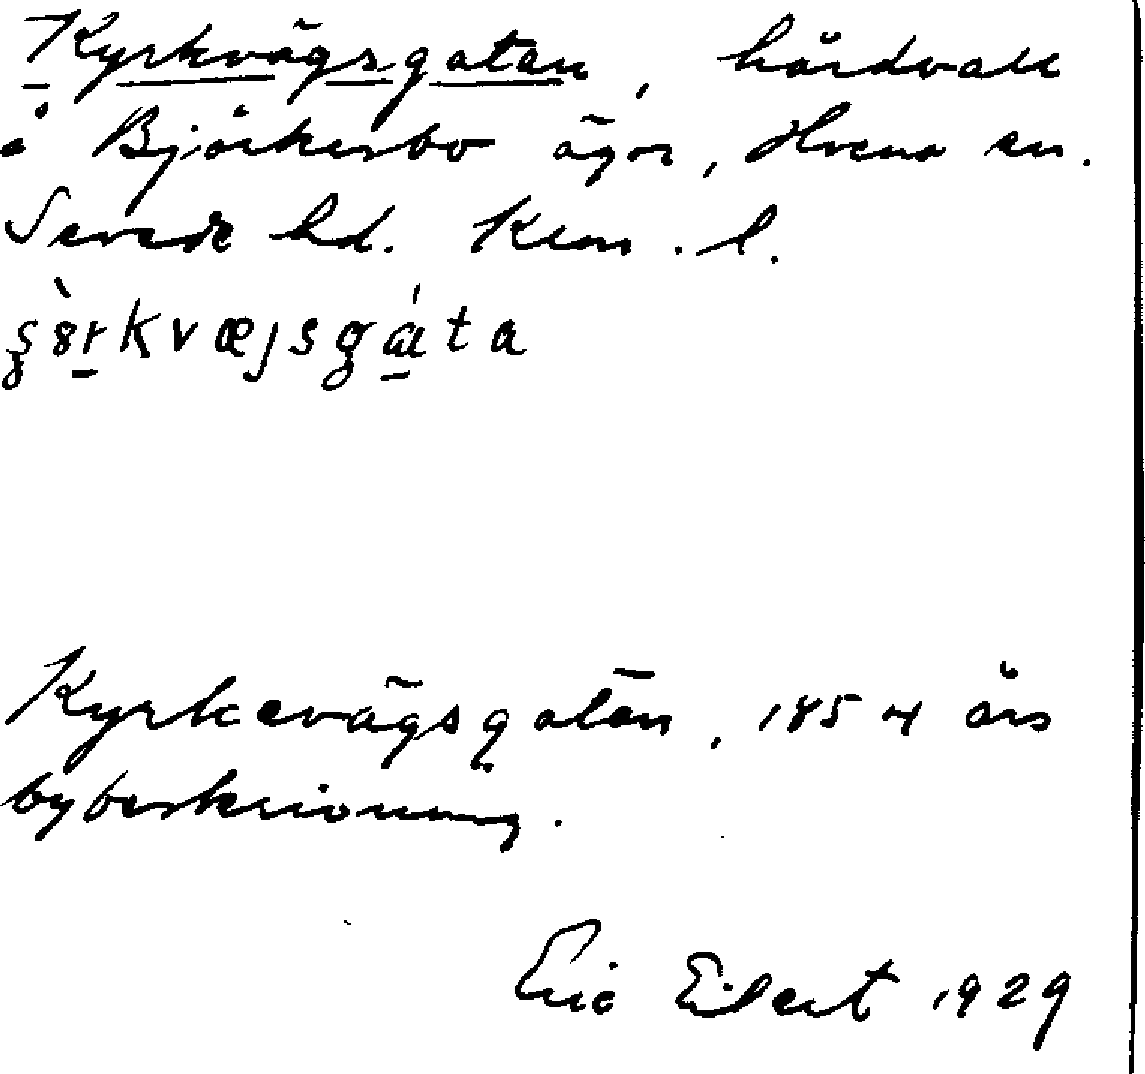 Kyrkvägsgatan, hårdvall
å Björkerbo ägor, Hvena sn.
Sevede hd. Kron. l.
kyrkevägsgatan, 1854 års
bybeskrivning.
Eric Eilert 1929